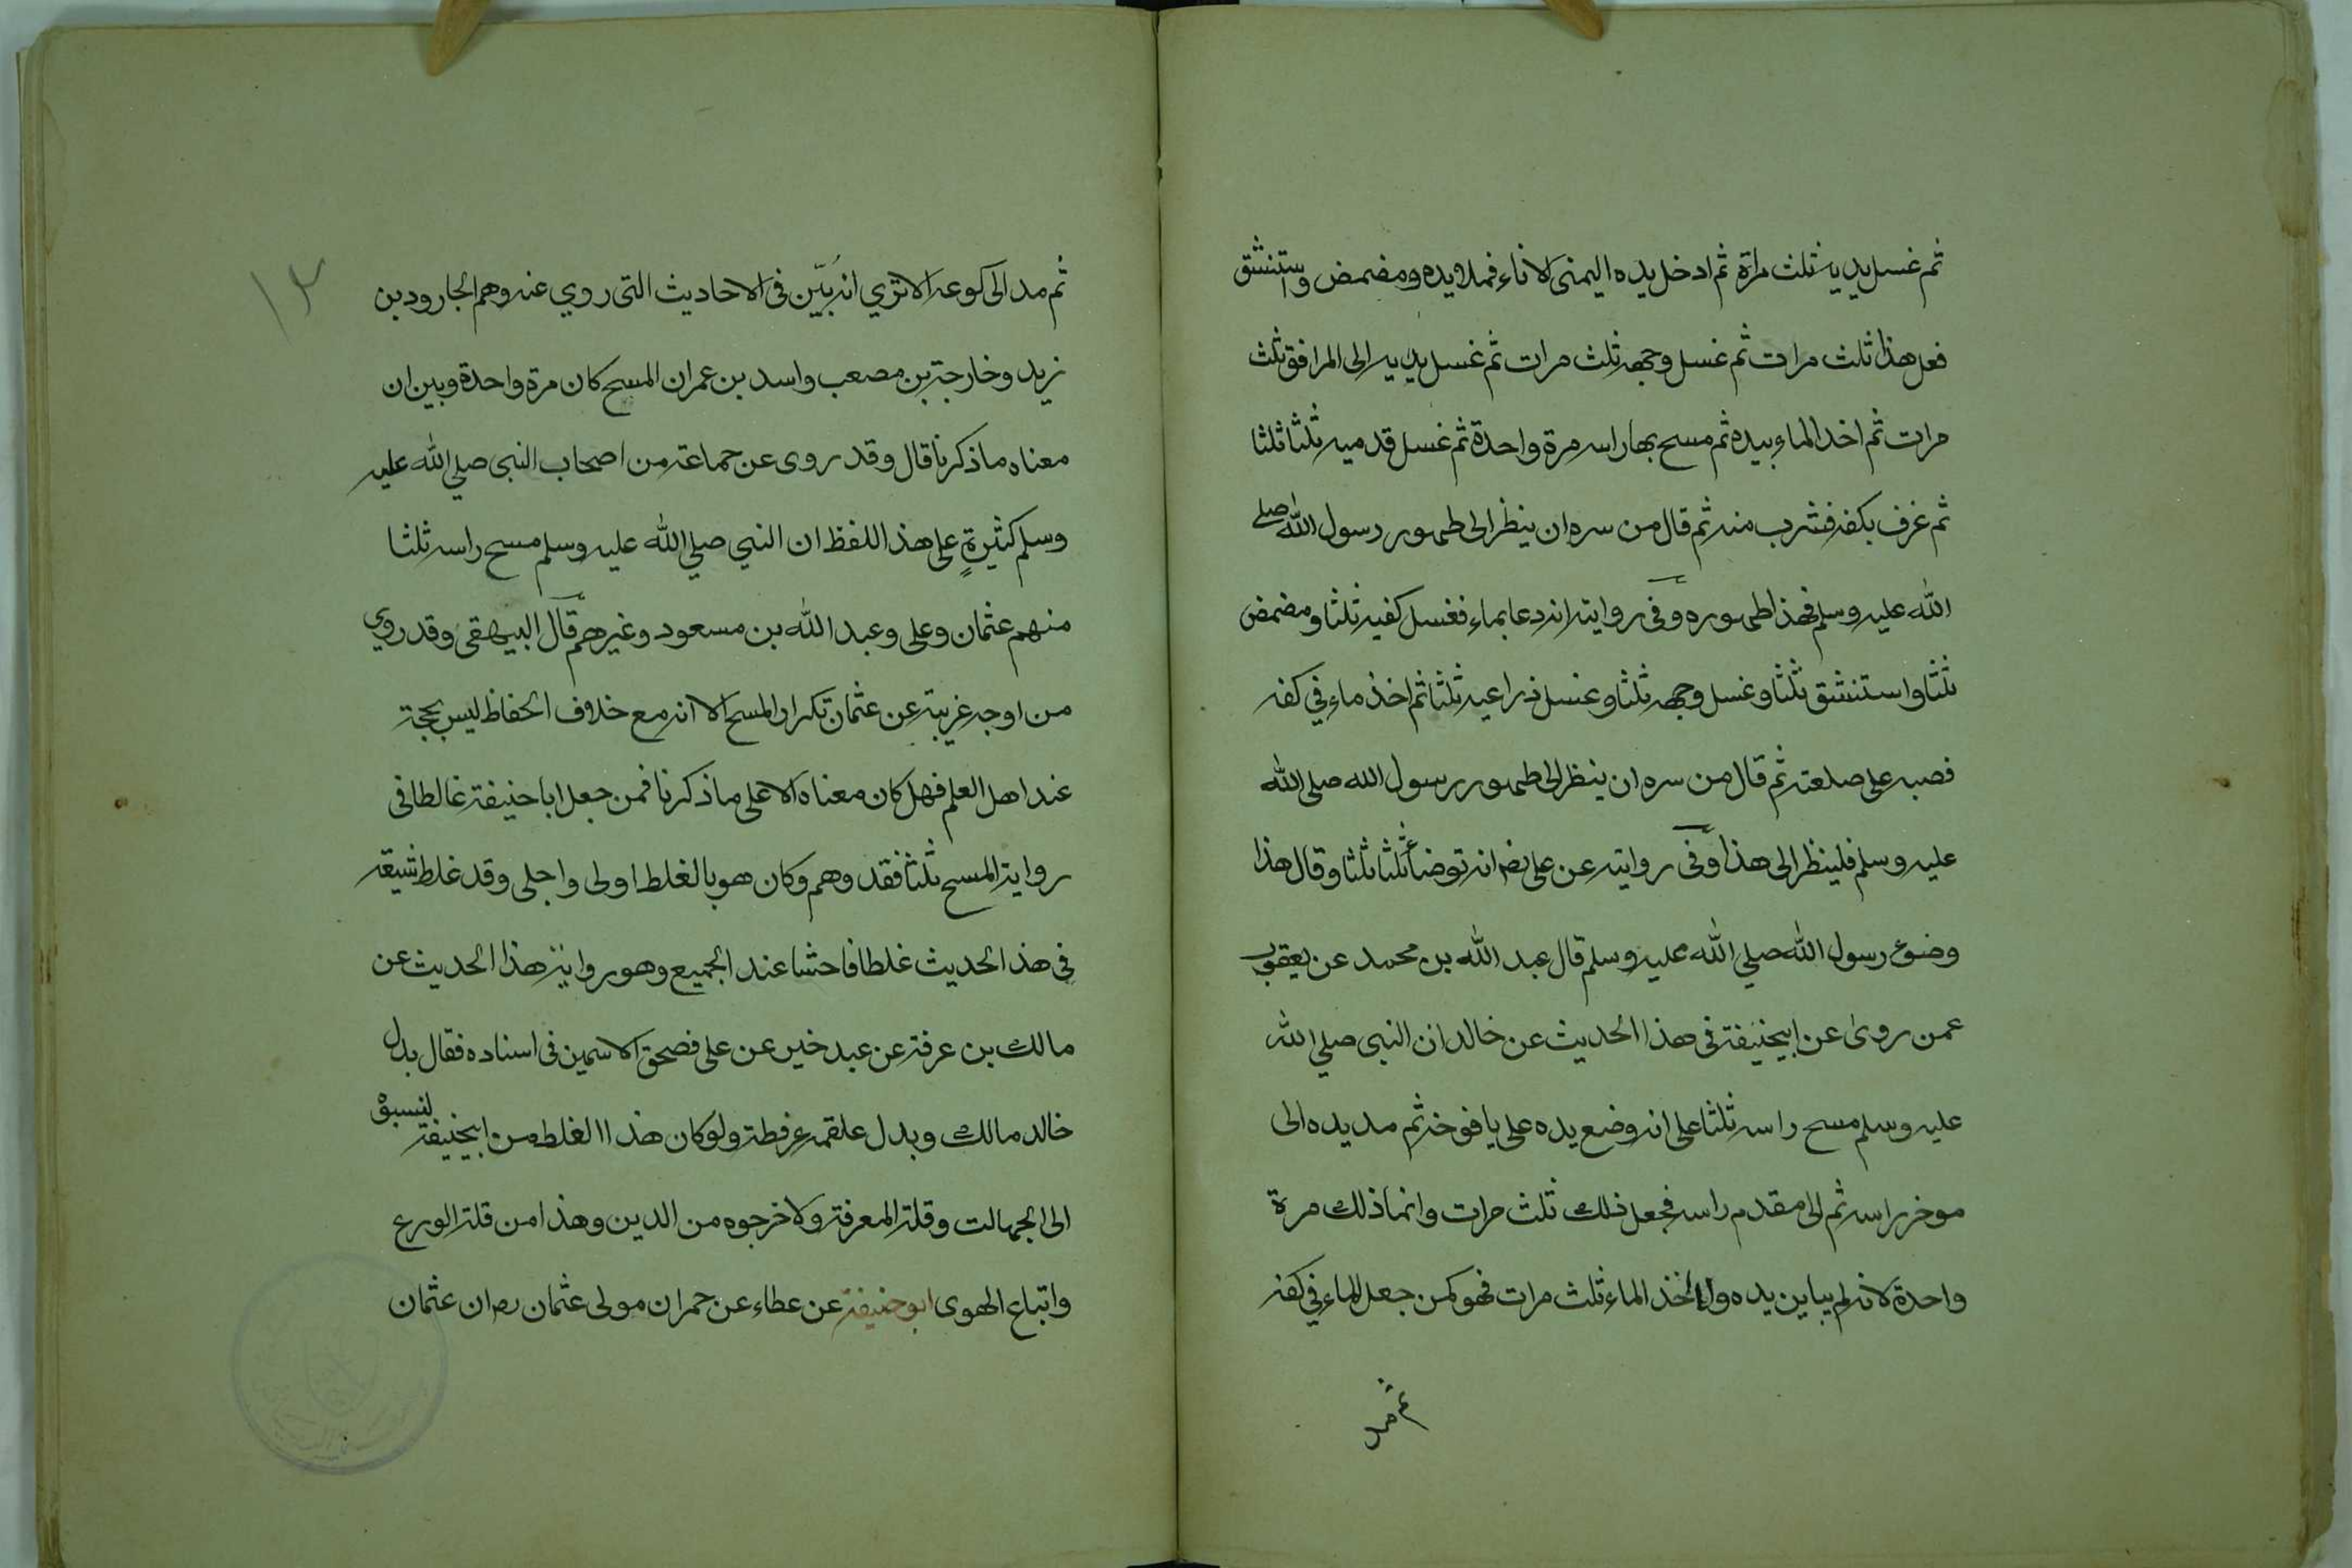 ثم غسل يديه ثلث مراة ثم ادخل يده اليمنى الاناء فملا يده ومضمض واستنشق
فعل هذا ثلث مرات ثم غسل وجهه ثلث مرات ثم غسل يديه الى المرافق ثلث
مرات ثم اخذ الماء بيده ثم مسح بها راسه مرة واحدة ثم غسل قدميه ثلثا ثلثا
ثم غرف بكفه فشرب منه ثم قال من سره ان ينظر الى طهور رسول الله صلي
الله عليه وسلم فهذا طهوره وفى رواية انه دعا بماء فغسل كفيه ثلثا ومضمض
ثلثا واستنشق ثلثا وغسل وجهه ثلثا وغسل ذراعيه ثلثا ثم اخذ ماء في كفه
فصبه على صلعته ثم قال من سره ان ينظر الى طهور رسول الله صلى الله
عليه وسلم فلينظر الى هذا وفى رواية عن على رضه انه توضأ ثلثا ثلثا وقال هذا
وضوء رسول الله صلي الله عليه وسلم قال عبد الله بن محمد عن يعقوب
عمن روى عن ابيحنيفة فى هذا الحديث عن خالد ان النبى صلي الله
عليه وسلم مسح راسه ثلثا على انه وضع يده على يافوخه ثم مد يده الى
موخر راسه ثم الى مقدم راسه فجعل ذلك ثلث مرات وانما ذلك مرة
واحدة لانه لم يباين يده ولا اخذ الماء ثلث مرات فهو كمن جعل الماء في كفه
ثم مد
١٣
ثم مد الى كوعه الا تري انه بَيَّن فى الاحاديث التى روي عنه وهم الجارود بن
زيد وخارجة بن مصعب واسد بن عمر ان المسح كان مرة واحدة وبين ان
معناه ما ذكرنا قال وقد روى عن جماعة من اصحاب النبى صلي الله عليه
وسلم كثيرةٍ على هذا اللفظ ان النبي صلي الله عليه وسلم مسح راسه ثلثا
منهم عثمان وعلى وعبد الله بن مسعود وغيرهم قال البيهقى وقد روي
من اوجه غريبة عن عثمان تكرار المسح الا انه مع خلاف الحفاظ ليس بحجة
عند اهل العلم فهل كان معناه الا على ما ذكرنا فمن جعل ابا حنيفة غالطا فى
رواية المسح ثلثا فقد وهم وكان هو بالغلط اولى واجلى وقد غلط شيبقه
فى هذا الحديث غلطا فاحشا عند الجميع وهو رواية هذا الحديث عن
مالك بن عرفة عن عبد خير عن على فصحف الاسمين فى اسناده فقال بدل
خالد مالك وبدل علقمه عرفطة ولو كان هذا الغلط من ابيحنيفة لنسبوه
الى الجهالت وقلة المعرفة ولاخرجوه من الدين وهذا من قلة الورع
واتباع الهوى ابو حنيفة عن عطاء عن حمران مولى عثمان رض ان عثمان